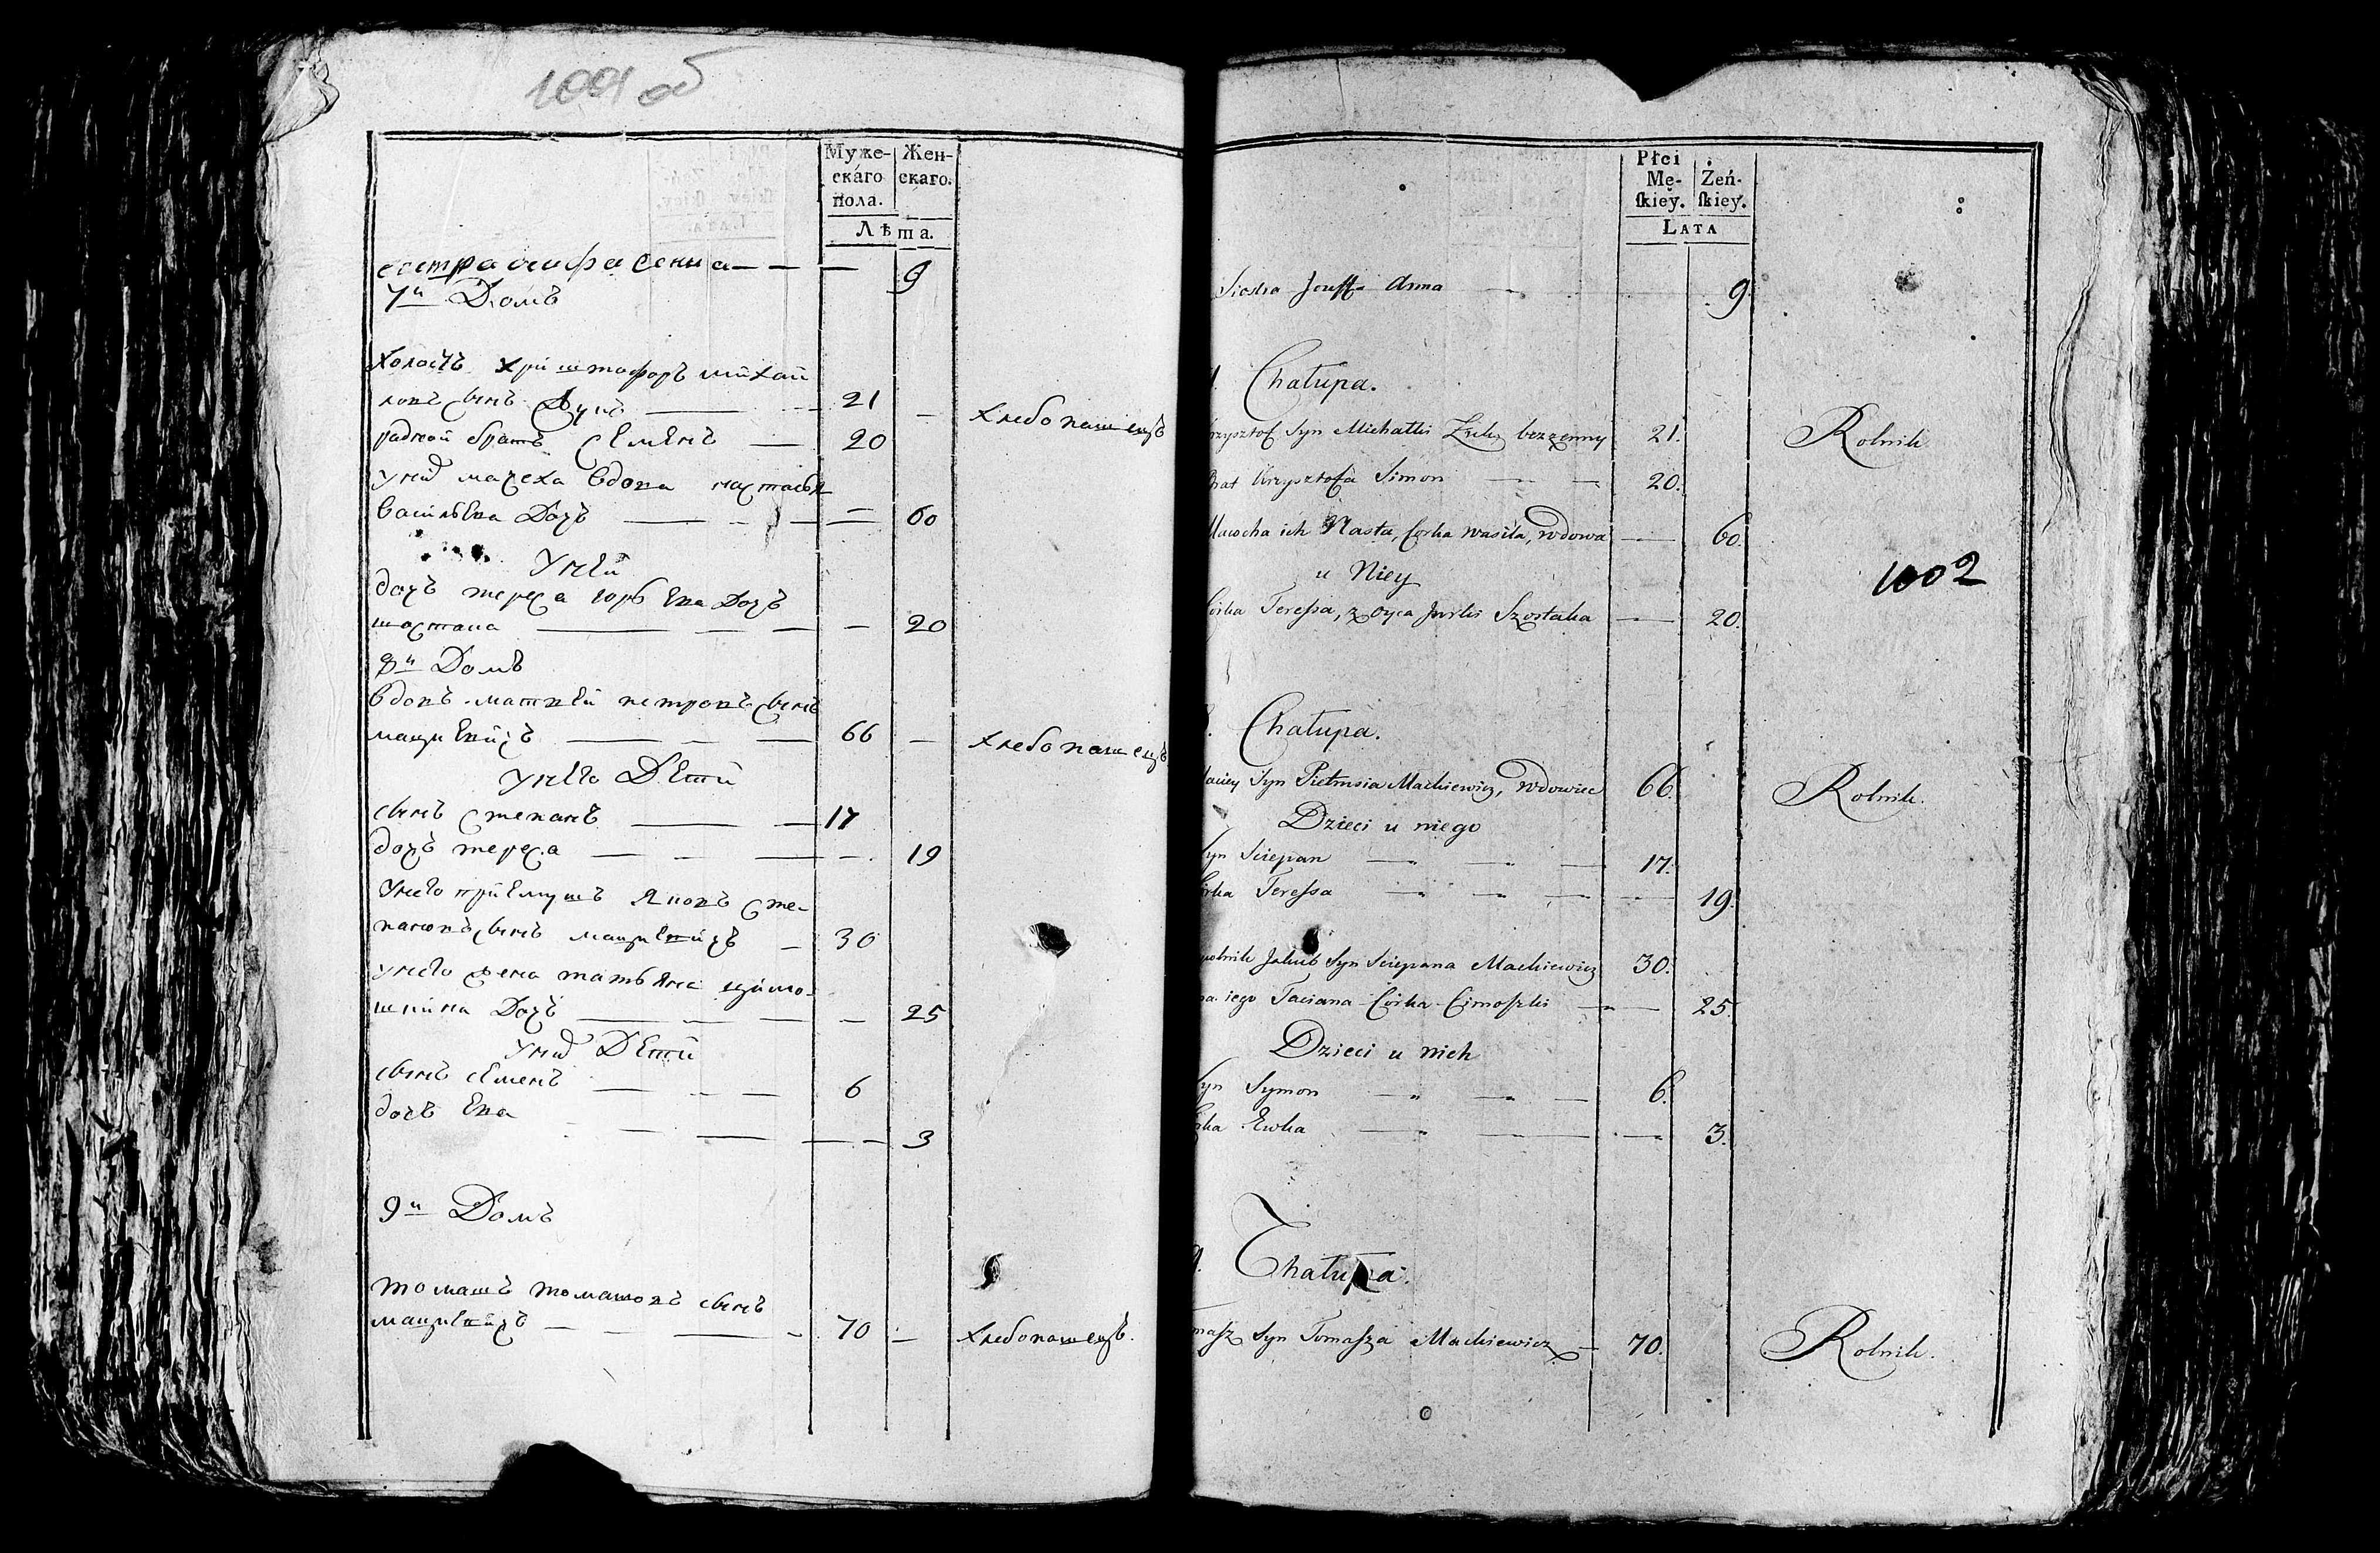 1001 об
Муже- Жен-
скаго скаго.
пола.
Лѣта.
сестра осифа сенна 9
7й Домъ
холостъ Криштофоръ михай
ловъ сынъ 21 хлебопашецъ
радной братъ семенъ 20
уних мачеха вдова настасья
васильева дочь 60
Унеи
дочь тереса юрьева дочь
шостака 20
8й Домъ
вдовъ матвей петровъ сынъ
мацкевичъ 66 хлебопашецъ
унего Дети
сынъ степанъ 17
дочь тереса 19
Унего приемышъ яковъ сте-
пановъ сынъ мацкевичъ 30
унего жена татьяна цимо-
шкина дочь 25
уних Дети
сынъ семенъ 6
дочь Ева 3
9й Домъ
томашъ томашовъ сынъ
мацкевичъ 70 хлебопашецъ.
Płci
Mę- Żeń-
ſkiey. ſkiey.
LATA
Siostra Anna 9.
Chałupa.
Krzysztof Syn Michałki bezzenny 21. Rolnik
Brat Krzysztofa Simon 20.
Macocha ich Nasta, Corka wasila, wdowa 60.
u Niey
Córka Teressa, z oyca Jurki Szostaka 20.
1002
8. Chałupa.
Maciey Syn Pietrusia Mackiewicz, Wdowiec 66. Rolnik.
Dzieci u niego
Syn Sciepan 17.
Córka Teressa 19.
Jakub Syn Sciepana Mackiewicz 30.
żona iego Taciana Córka Cimoszki 25.
Dzieci u nich
Syn Symon 6.
Córka Ewka 3.
9. Chałupa.
Tomasz Syn Tomasza Mackiewicz 70. Rolnik.